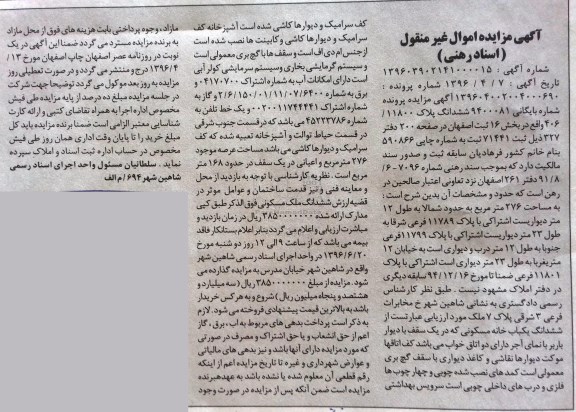 آگهی مزایده اموال غیر منقول
(اسناد رهنی)
شماره آگهی : ۱۳۹۶۰۳۹۰۲۱۴۱۰۰۰۰۱۵
تاریخ آگهی : ۱۳۹۶/۴/۷ شماره پرونده :
۱۳۹۶۰۴۰۰۲۰۰۴۰۰۰۶۹۰ آگهی مزایده پرونده
شماره بایگانی ۹۴۰۰۰۸۱ ششدانگ پلاک ۱۱۸۰۰/
۴۰۶ واقع در بخش ۱۶ ثبت اصفهان در صفحه ۲۰۰ دفتر
۳۲۷ ذیل ثبت ۷۱۴۴۱ به شماره چاپی ۵۹۰۸۶۶
بنام خانم کشور فرهادیان سابقه ثبت و صدور سند
مالکیت دارد که بموجب سند رهنی شماره ۷۰۹۶-۶/
۹۱/۸ دفتر ۲۶۱ اصفهان نزد تعاونی اعتبار صالحین در
رهن است که حدود و مشخصات آن بدین شرح است :
به مساحت ۲۷۶ متر مربع به حدود شمالا به طول ۱۲
متر دیواریست اشتراکی با پلاک ۱۱۷۸۹ فرعی شرقا به
طول ۲۳ متر دیواریست اشتراکی با پلاک ۱۱۷۹۹ فرعی
جنوبا به طول ۱۲ متر درب و دیواری است به خیابان ۱۲
متریغربا به طول ۲۳ متر دیواری است اشتراکی با پلاک
۱۱۸۰۱ فرعی ضمنا تا مورخ ۹۴/۱۲/۱۶ سابقه دیگری
در دفتر املاک مشهود نیست . طبق نظر کارشناس
رسمی دادگستری به نشانی شاهین شهر خ مخابرات
فرعی ۳ شرقی پلاک ۷ ملک مورد ارزیابی عبارتست از
ششدانگ یکباب خانه مسکونی که در یک سقف با دیوار
باربر با نمای آجر دارای دو اتاق خواب می باشد کف اتاقها
موکت دیوارها نقاشی و کاغذ دیواری با سقف گچ بری
معمولی است کمد های نصب شده چوبی و چهار چوب ها
فلزی و درب های داخلی چوبی است سرویس بهداشتی
کف سرامیک و دیوارها کاشی شده است آشپزخانه کف
سرامیک و دیوارها کاشی و کابینت ها نصب شده که
ازجنس ام دی اف است و سقف ها با گچ بری معمولی است
و سیستم گرمایشی بخاری وسیستم سرمایشی کولر آبی
است دارای امکانات آب به شماره اشتراک ۴۱۷۰۷۰۰ و
برق به شماره ۶/۲/۱۵۰/۰۱/۱۱/۰۷/۰۷۶۴۰۰ و گاز به
شماره اشتراک ۰۰۲۰۰۱۱۷۴۴۴۴۱ و یک خط تلفن به
شماره ۴۵۲۲۳۷۸۶ می باشد که درقسمت جنوب شرقی
در قسمت حیاط توالت و آشپزخانه تعبیه شده که کف
سرامیک و دیوارها کاشی می باشد مساحت عرصه موجود
۲۷۶ مترمربع و اعیانی در یک سقف در حدود ۱۶۸ متر
مربع است . نظریه کارشناسی با توجه به بازدید از محل
و معاینه فنی و نیز قدمت ساختمان و عوامل موثر در
قضیه ارزش ششدانگ ملک مسکونی فوق الذکر طبق کپی
مدارک ارائه شده ۳۸۵۰۰۰۰۰۰۰ ریال در زمان بازدید و
مباشرت ارزیابی و اعلام می گردد بنابر اعلام بستانکار فاقد
بیمه می باشد که از ساعت ۹ الی ۱۲ روز دو شنبه مورخ
۱۳۹۶/۶/۲۰ در واحد اجرای اسناد رسمی شاهین شهر
واقع در شاهین شهر خیابان مدرس به مزایده گذارده می
شود . مزایده از مبلغ ۳۸۵۰۰۰۰۰۰۰ ریال ( سه میلیارد و
هشتصد و پنجاه میلیون ریال ) شروع و به هر کس خریدار
باشد به بالاترین قیمت پیشنهادی فروخته می شود . لازم
به ذکر است پرداخت بدهی های مربوط به آب ، برق ، گاز
اعم از حق انشعاب و یا حق اشتراک و مصرف در صورتی
که مورد مزایده دارای آنها باشد و نیز بدهی های مالیاتی
و عوارض شهرداری و غیره تا تاریخ مزایده اعم از اینکه
رقم قطعی آن معلوم شده یا نشده باشد به عهدهبرنده
مزایده است ضمن آنکه پس از مزایده در صورت وجود
مازاد، وجوه پرداختی بابت هزینه های فوق از محل مازاد
به برنده مزایده مسترد می گردد ضمنا این آگهی در یک
نوبت در روزنامه عصر اصفهان چاپ اصفهان مورخ ۱۳/
۱۳۹۶/۴ درج و منتشر می گردد و در صورت تعطیلی روز
مزایده به روز بعد موکول می گردد توضیحا جهت شرکت
در جلسه مزایده مبلغ ده درصد از پایه مزایده طی فیش
مخصوص اداره اجرا به همراه تقاضای کتبی و ارائه کارت
شناسایی معتبر الزامی است ضمنا برنده مزایده باید کل
مبلغ خرید را تا پایان وقت اداری همان روز طی فیش
مخصوص در حساب اداره ثبت اسناد و املاک سپرده
نماید . سلطانیان مسئول واحد اجرای اسناد رسمی
شاهین شهر ۶۹۴/م الف